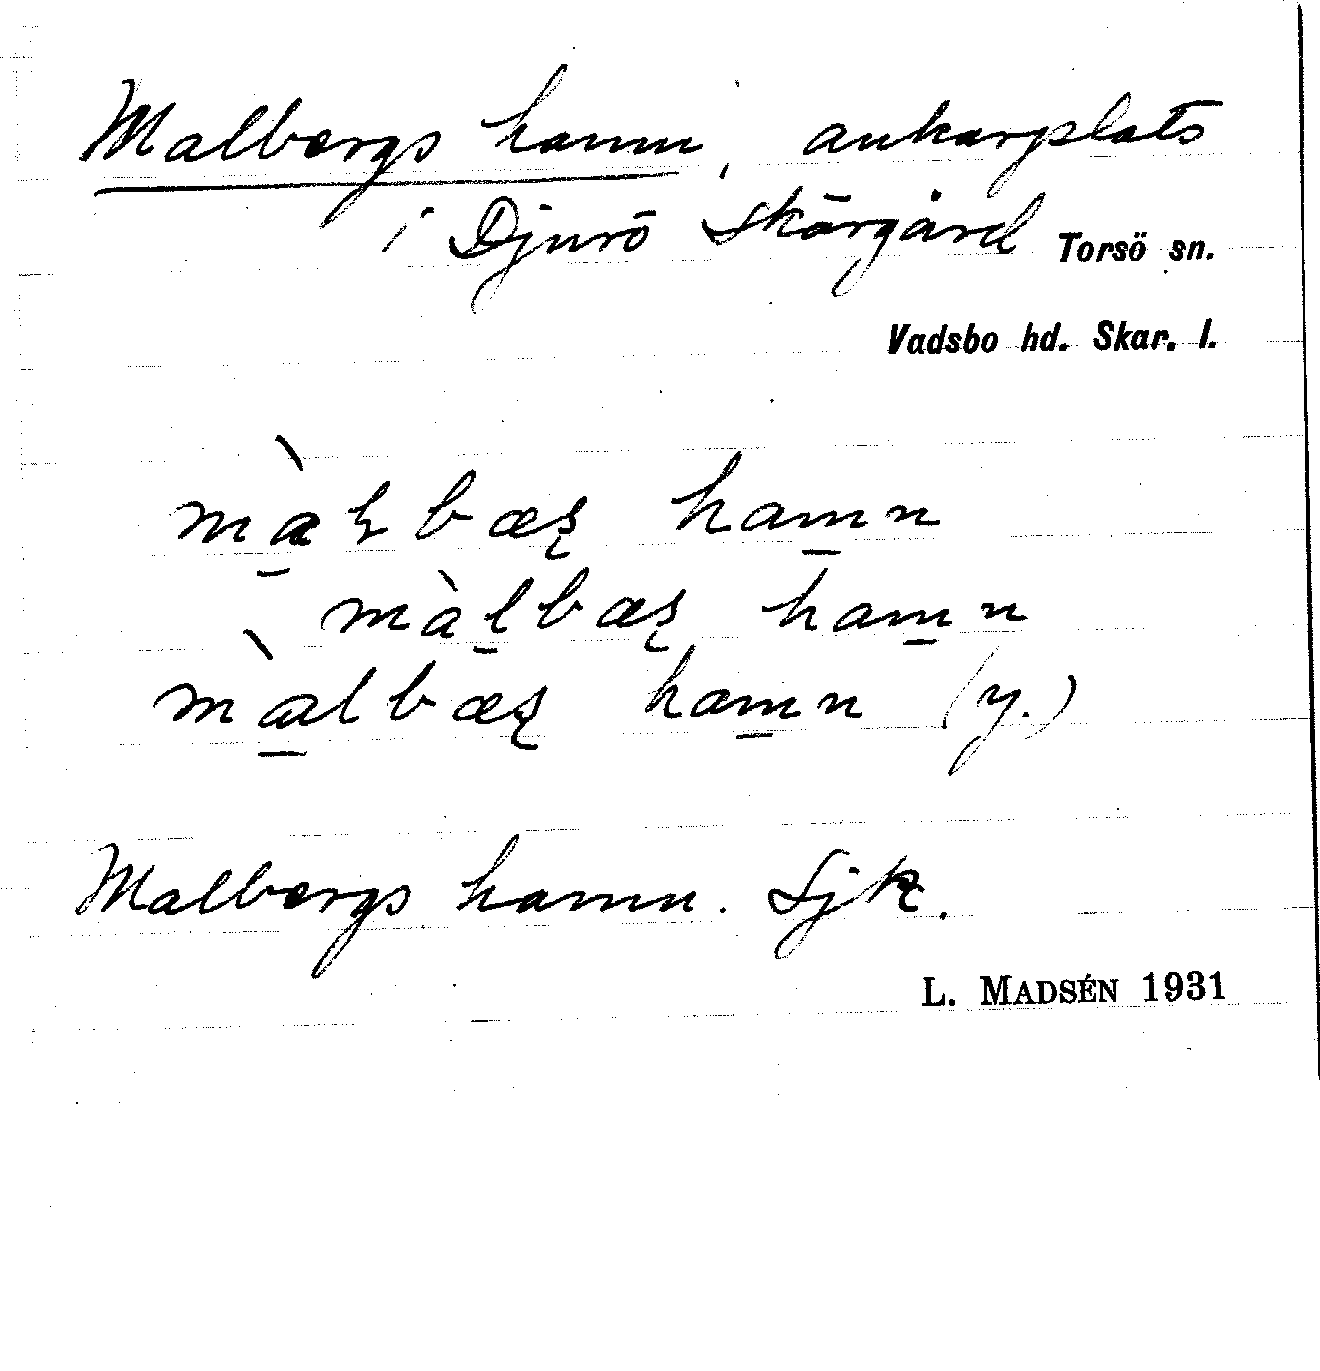 Malbergs hamn, ankarplats
i Djurö Skärgård Torsö sn.
Vadsbo hd. Skar. l.
màɽbæʂ hamn
màlbæʂ hamn
màlbæʂ hamn (y.)
Malbergs hamn. Sjk.
L. MADSÉN 1931